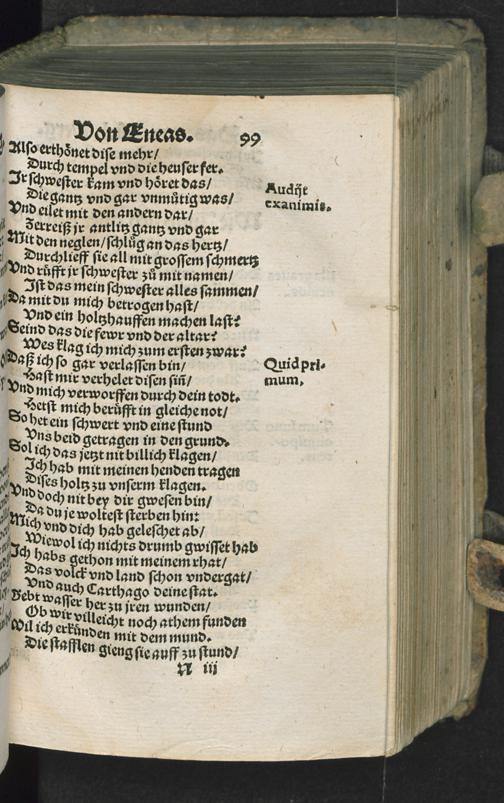 Von Eneas. 99
Also erthönet dise mehr/
Durch tempel vnd die heuser fer.
Ir schwester kam vnd höret das/
Audijt
Die gantz vnd gar vnmütig was/
exanimis.
Vnd eilet mit den andern dar/
Zerreiß jr antlitz gantz vnd gar
Mit den neglen/ schlüg an das hertz/
Durchlieff sie all mit grossem schmertz
Vnd rüfft jr schwester zů mit namen/
Ist das mein schwester alles sammen/
Da mit du mich betrogen hast/
Vnd ein holtzhauffen machen last?
Seind das die fewr vnd der altar?
Wes klag ich mich zum ersten zwar?
Daß ich so gar verlassen bin/
Quid pri-
Hast mir verhelet disen siñ/
mum.
Vnd mich verworffen durch dein todt.
Hetst mich berüfft in gleiche not/
So het ein schwert vnd eine stund
Vns beid getragen in den grund.
Sol ich das jetzt nit billich klagen/
Ich hab mit meinen henden tragen
Dises holtz zu vnserm klagen.
Vnd doch nit bey dir gwesen bin/
Da du je woltest sterben hin:
Mich vnd dich hab geleschet ab/
Wiewol ich nichts drumb gwisset hab
Ich habs gethon mit meinem rhat/
Das volck vnd land schon vndergat/
Vnd auch Carthago deine stat.
Gebt wasser her zu jren wunden/
Ob wir villeicht noch athem funden
Wil ich erkünden mit dem mund.
Die stafflen gieng sie auff zu stund/
N iij